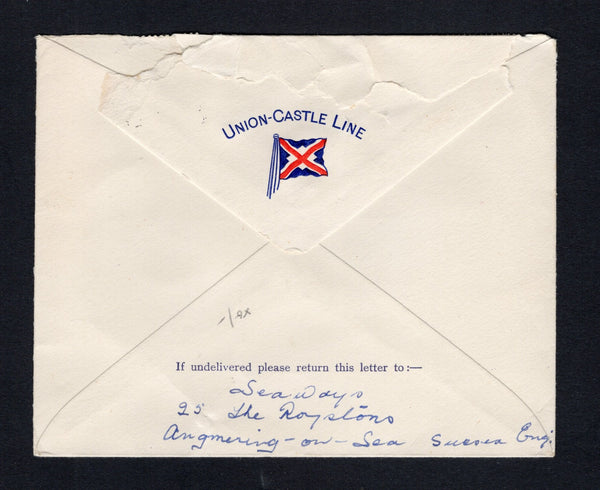 UNION-CASTLE LINE
If undelivered please return this letter to :—
Seaways
25 The Roystons
Angmering-on-Sea Sussex Eng.